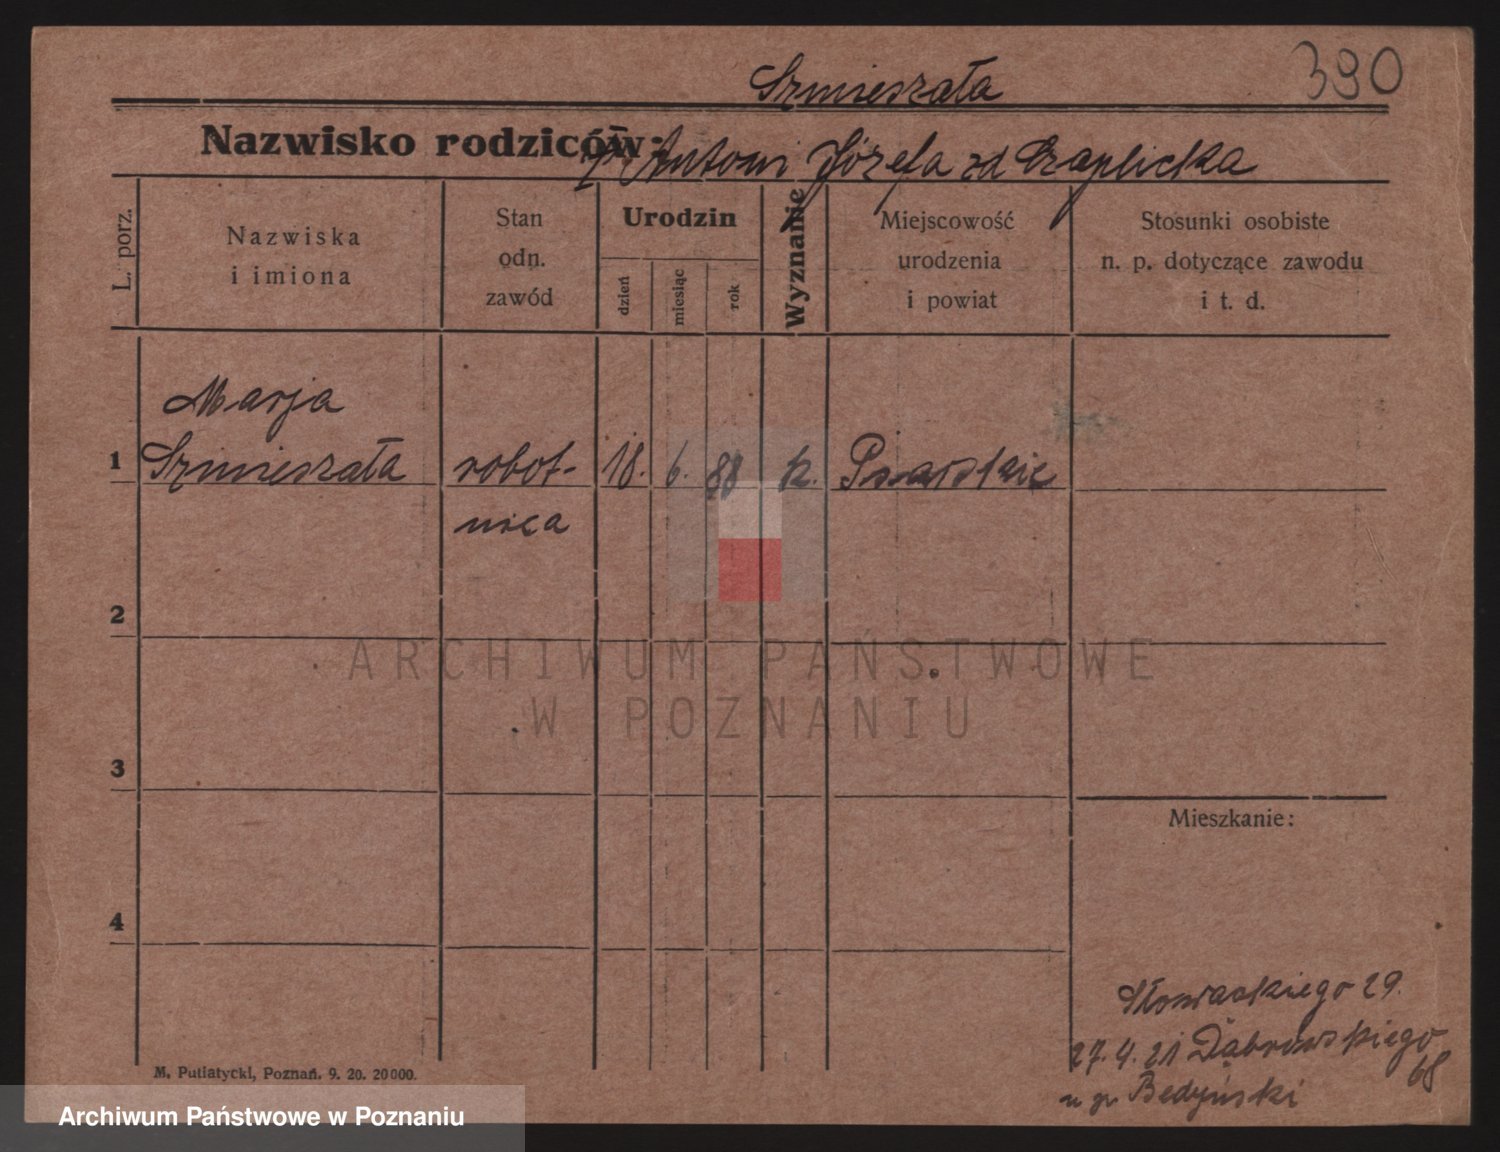 390
Szmieszała
Nazwisko rodziców:
Antoni Józefa zd Czaplicka
L. porz.
Nazwiska
i imiona
Stan
odn.
zawód
Urodzin
dzień
miesiąc
rok
Wyznanie
Miejscowość
urodzenia
i powiat
Stosunki osobiste
n. p. dotyczące zawodu
i t. d.
Marja
1 Szmieszała robot- 18. 6. 88 k. Psarskie
nica
2
ARCHIWUM PAŃSTWOWE
W POZNANIU
3
Mieszkanie:
4
Słowackiego 29.
27.4.21 Dąbrowskiego
68
u Bedyński
M. Putiatycki, Poznań. 9. 20. 20000.
Archiwum Państwowe w Poznaniu